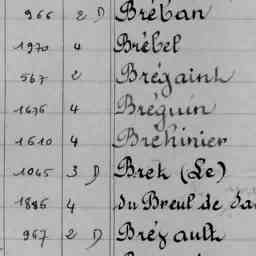 966 2 D Bréban
1970 4 Brébel
567 2 Brégaint
1676 4 Bréguin
1610 4 Bréhinier
1045 3 D Brek (Le)
1885 4 du Breul de
967 2 D Brézault